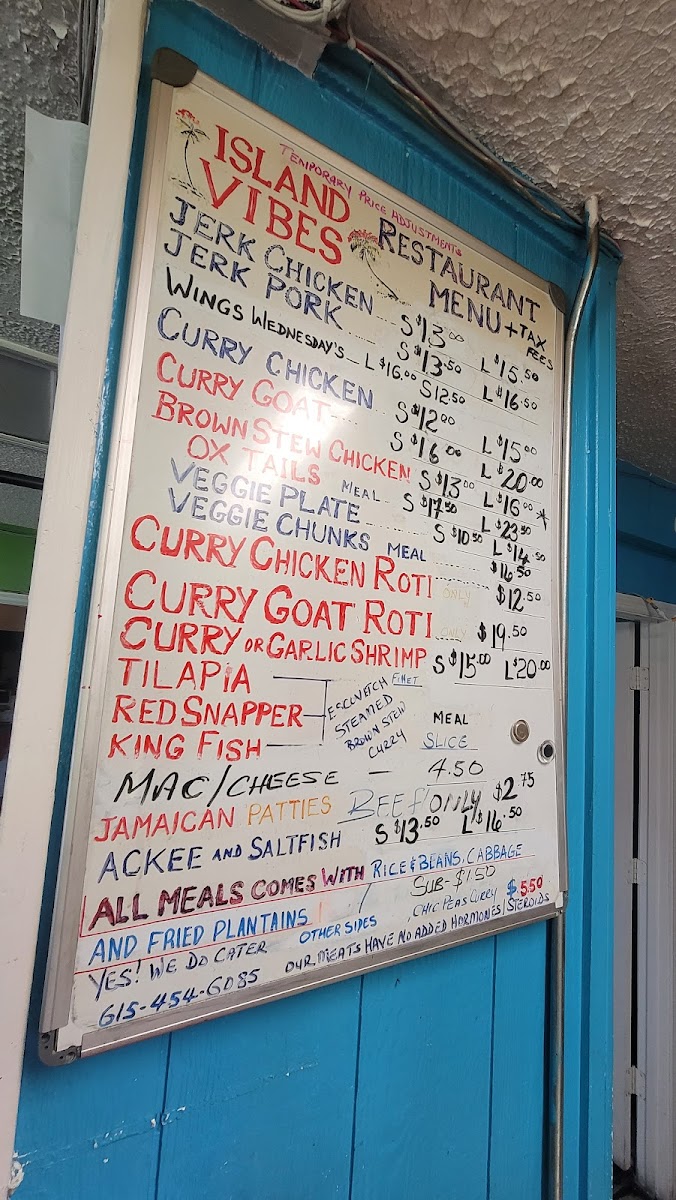 TEMPORARY PRICE ADJUSTMENTS
ISLAND VIBES
RESTAURANT MENU + TAX FEES
JERK CHICKEN S $13.00 L $15.50
JERK PORK S $13.50 L $16.50
WINGS WEDNESDAY'S L $16.00 S 12.50
CURRY CHICKEN S $12.00 L $15.00
CURRY GOAT S $16.00 L $20.00
BROWN STEW CHICKEN S $13.00 L $16.00 *
OX TAILS MEAL S $17.50 L $23.50
VEGGIE PLATE S $10.50 L $14.50
VEGGIE CHUNKS MEAL $16.50
CURRY CHICKEN ROTI ONLY $12.50
CURRY GOAT ROTI ONLY $19.50
CURRY OR GARLIC SHRIMP S $15.00 L $20.00
TILAPIA
RED SNAPPER
KING FISH
ESCOVITCH
STEAMED
BROWN STEW
CURRY
MEAL
SLICE
MAC/CHEESE — 4.50
JAMAICAN PATTIES BEEF ONLY $2.75
ACKEE AND SALTFISH S $13.50 L $16.50
ALL MEALS COMES WITH RICE & BEANS, CABBAGE
AND FRIED PLANTAINS / SUB- $1.50
OTHER SIDES , CHIC PEAS CURRY $5.50
YES! WE DO CATER
615-454-6085
OUR MEATS HAVE NO ADDED HORMONES/STEROIDS